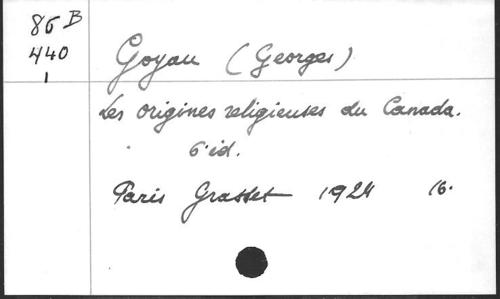 86 B
440
1
Goyau (Georges)
Les origines religieuses du Canada.
6. éd.
Paris Grasset 1924 16.